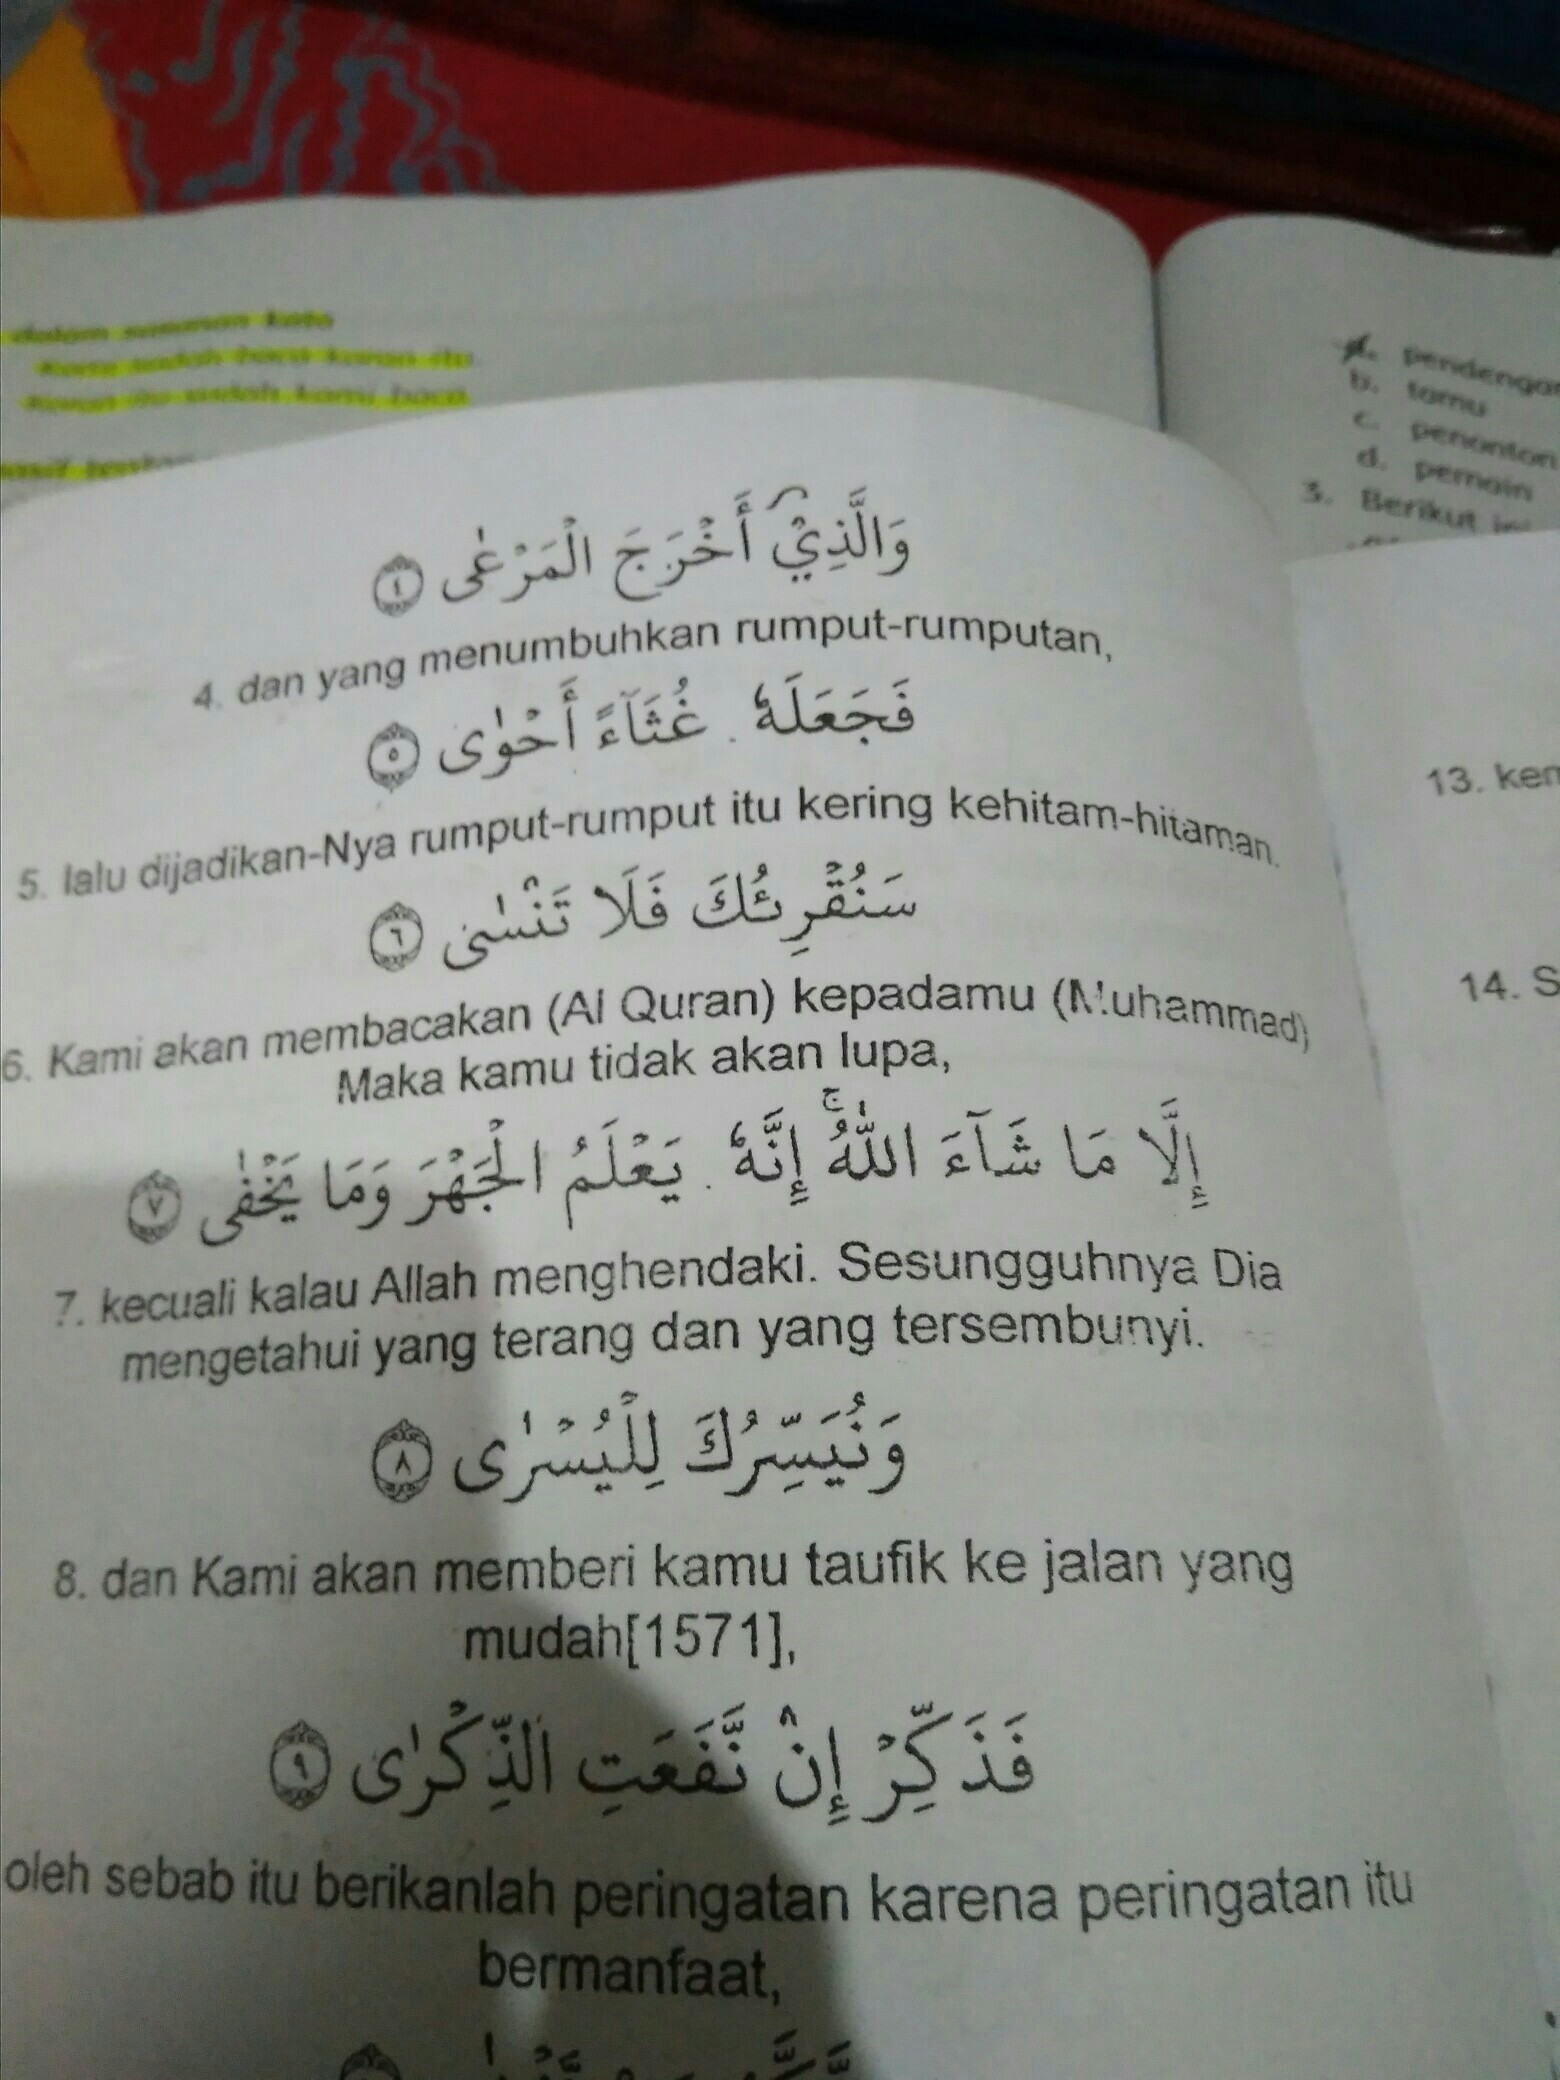 dalam susunan kata
Kami sudah baca koran itu.
Koran itu sudah kami baca
pendengar
b. tamu
c. penonton
d. pemain
3. Berikut ini
وَالَّذِيْٓ أَخْرَجَ الْمَرْعٰى ٤
4. dan yang menumbuhkan rumput-rumputan,
فَجَعَلَهٗ غُثَآءً أَحْوٰى ٥
5. lalu dijadikan-Nya rumput-rumput itu kering kehitam-hitaman.
سَنُقْرِئُكَ فَلَا تَنْسٰى ٦
6. Kami akan membacakan (Al Quran) kepadamu (Muhammad)
Maka kamu tidak akan lupa,
إِلَّا مَا شَآءَ اللّٰهُ ۚ إِنَّهٗ يَعْلَمُ الْجَهْرَ وَمَا يَخْفٰى ٧
7. kecuali kalau Allah menghendaki. Sesungguhnya Dia
mengetahui yang terang dan yang tersembunyi.
وَنُيَسِّرُكَ لِلْيُسْرٰى ٨
8. dan Kami akan memberi kamu taufik ke jalan yang
mudah[1571],
فَذَكِّرْ إِنْ نَّفَعَتِ الذِّكْرٰى ٩
oleh sebab itu berikanlah peringatan karena peringatan itu
bermanfaat,
13. ken
14. S